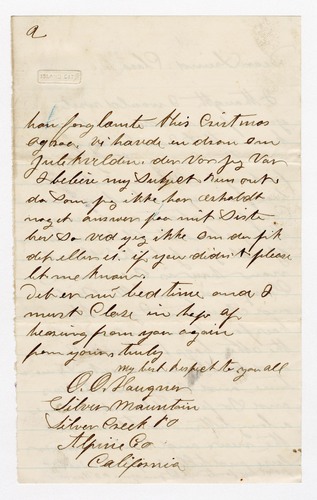 2
han forglamte this Cristmas
agsaa. vi havde en dram om
Julekvelden. der Vor jeg Var
I beleive my Subject Runs out
da Som jeg ikke har erholdt
noget answer paa mit Siste.
her So ved jeg ikke om du fik
det eller ei if you didn't please
let me know.
Det er nu bed time and I
must Close in hope of
hearing from you again
from yours truly
my best respect to you all
O. O. Haugner
Silver Mountain
Silver Creek PO
Alpine Co
California